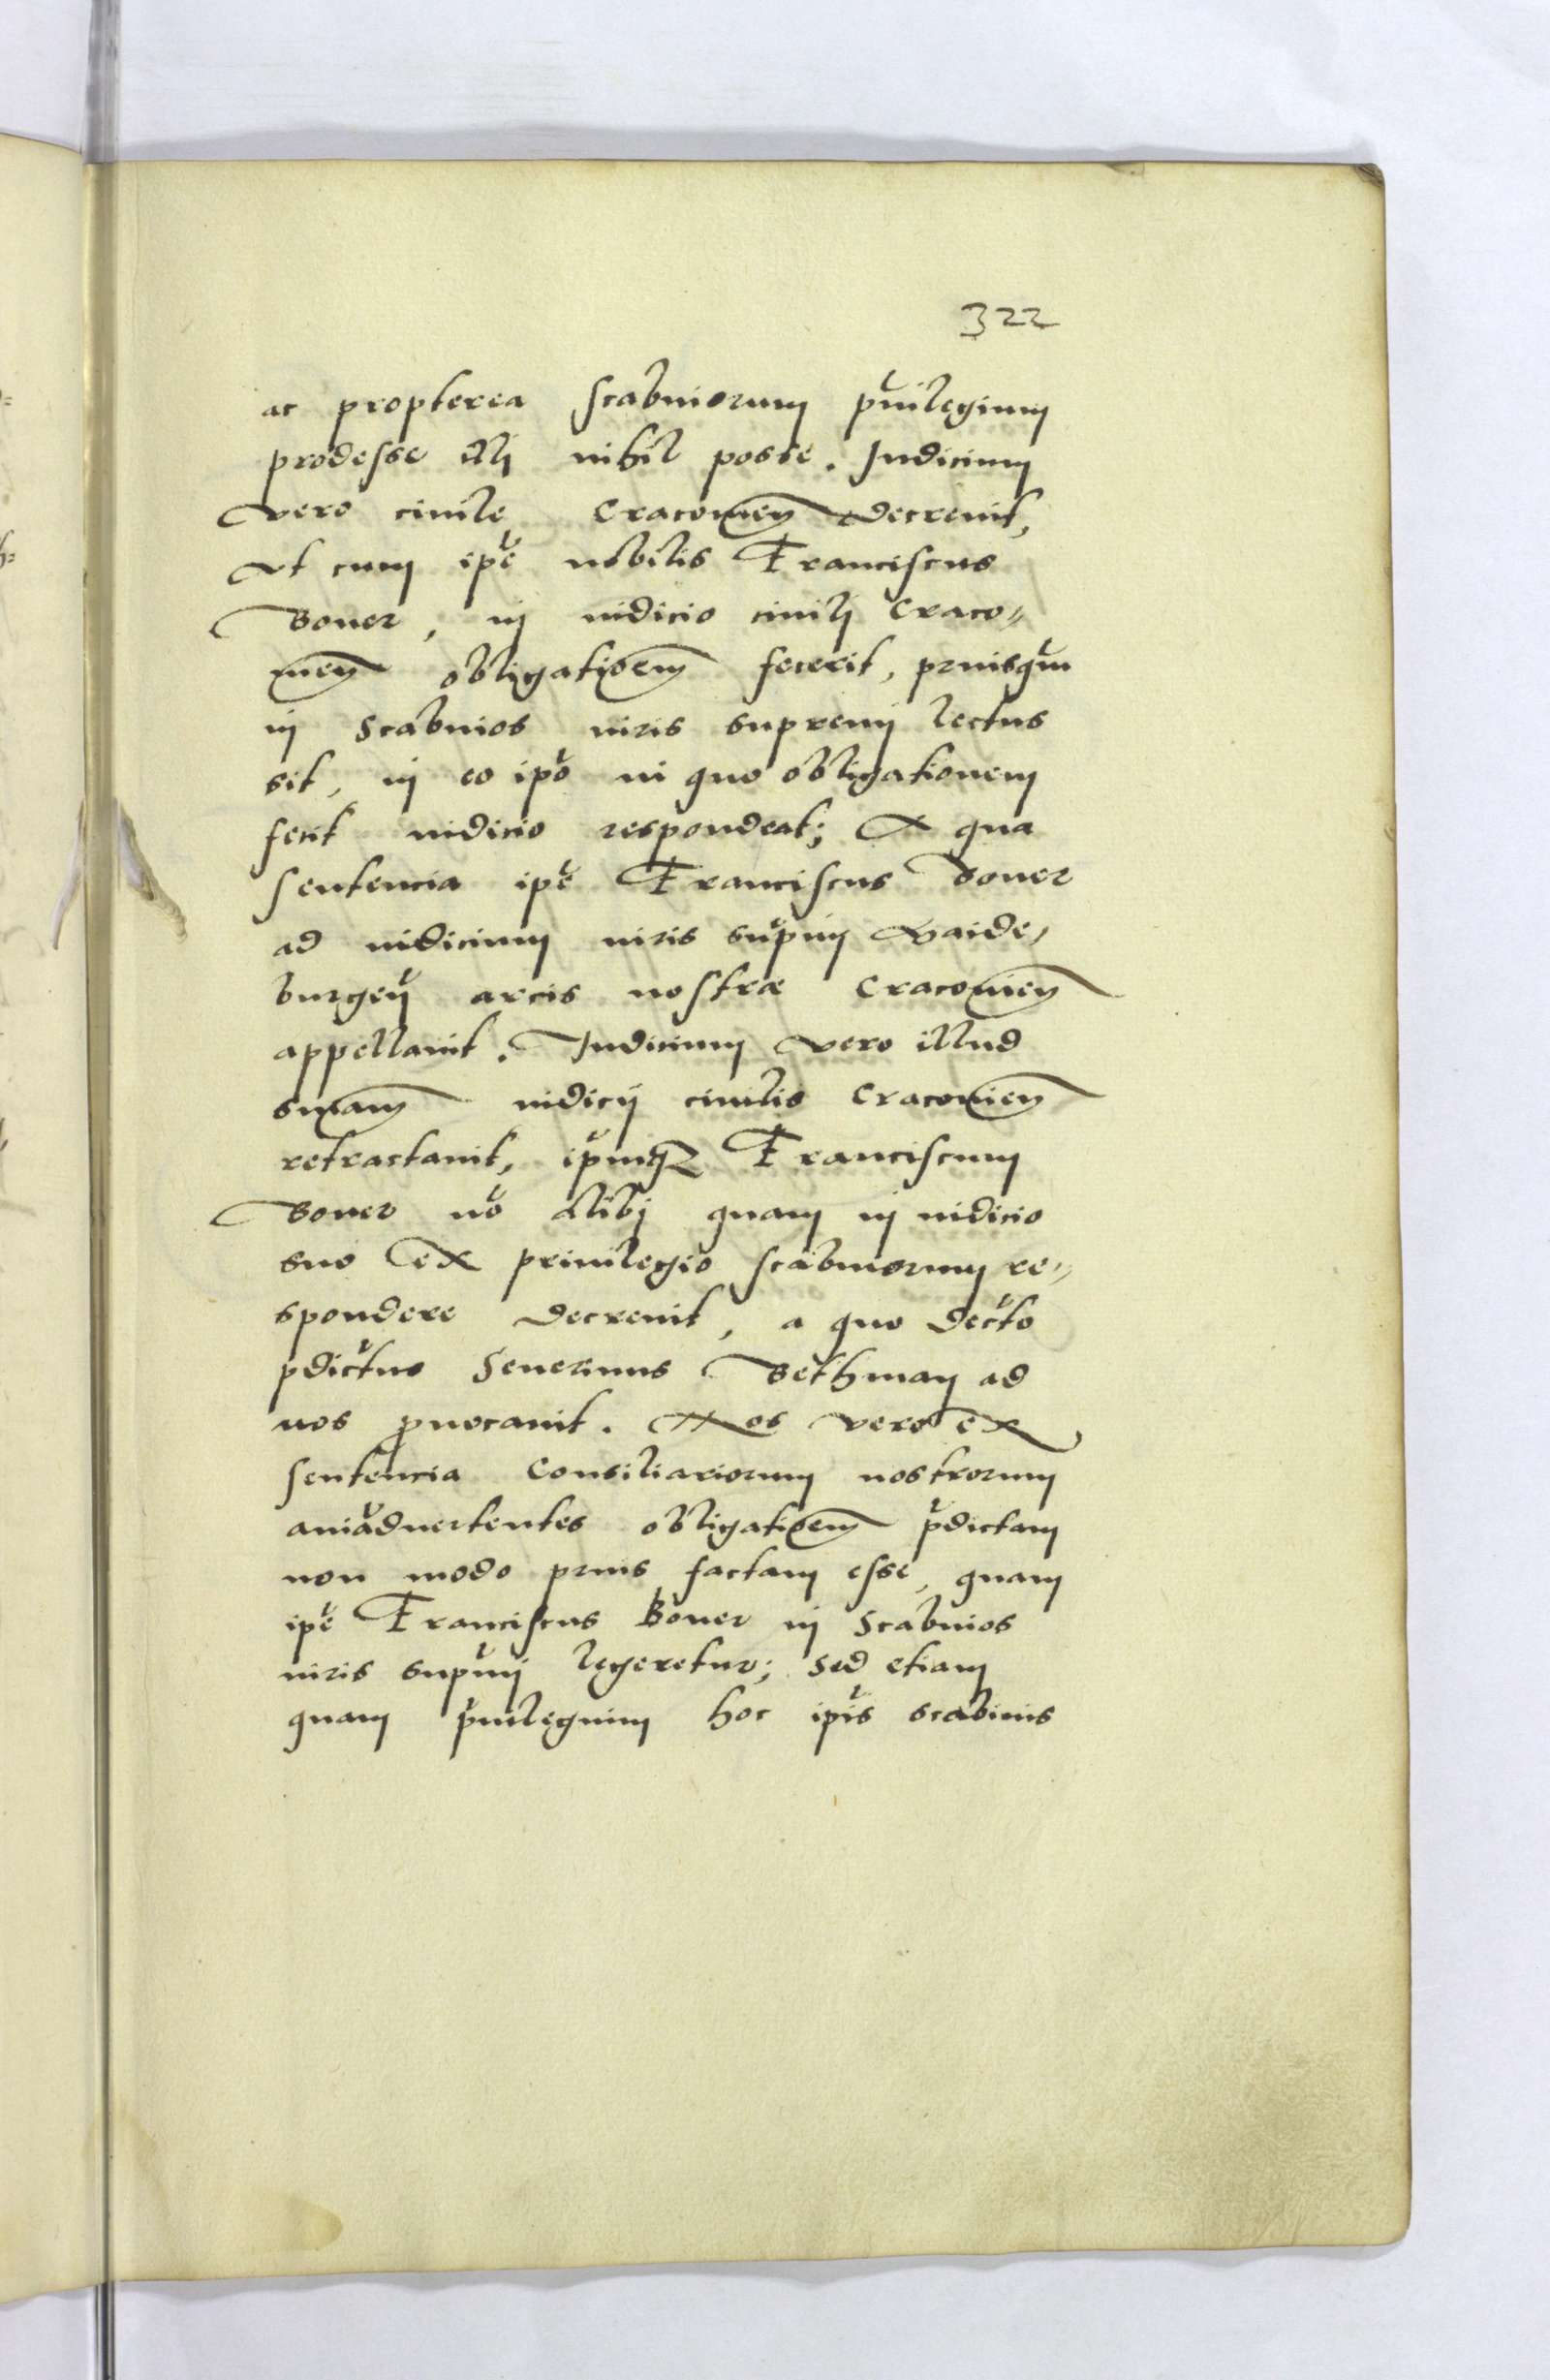 322
ac propterea scabinorum pͮuilegium
prodesse illi nihil posse. Iudicium
vero ciuile Cracouien decreuit,
Vt cum ipͮe nobilis Franciscus
Boner, in iudicio ciuili Craco„
uien obligationem fecerit, priusqͮm
in Scabinos iuris supremi lectus
sit, in eo ipͮo in quo obligationem
fecit iudicio respondeat; A qua
sentencia ipͮe Franciscus Boner
ad iudicium iuris supͮmi Maide,
burgeñ arcis nostræ Cracouien
appellauit. Iudicium vero illud
sniam iudicij ciuilis Cracouien
retractauit, ipͮmqꝫ Franciscum
Boner nõ alibi quam in iudicio
suo ex priuilegio scabinorum re„
spondere decreuit, a quo decͮto
pdictus Seuerinus Bethman ad
nos ꝓuocauit. Nos vero ex
sentencia Consiliariorum nostrorum
aniͮaduertentes obligationem pͮdictam
non modo prius factam esse, quam
ipͮe Franciscus Boner in Scabinos
iuris supͮmi legeretur; sed etiam
quam pͮuilegium hoc ipͮis scabinis